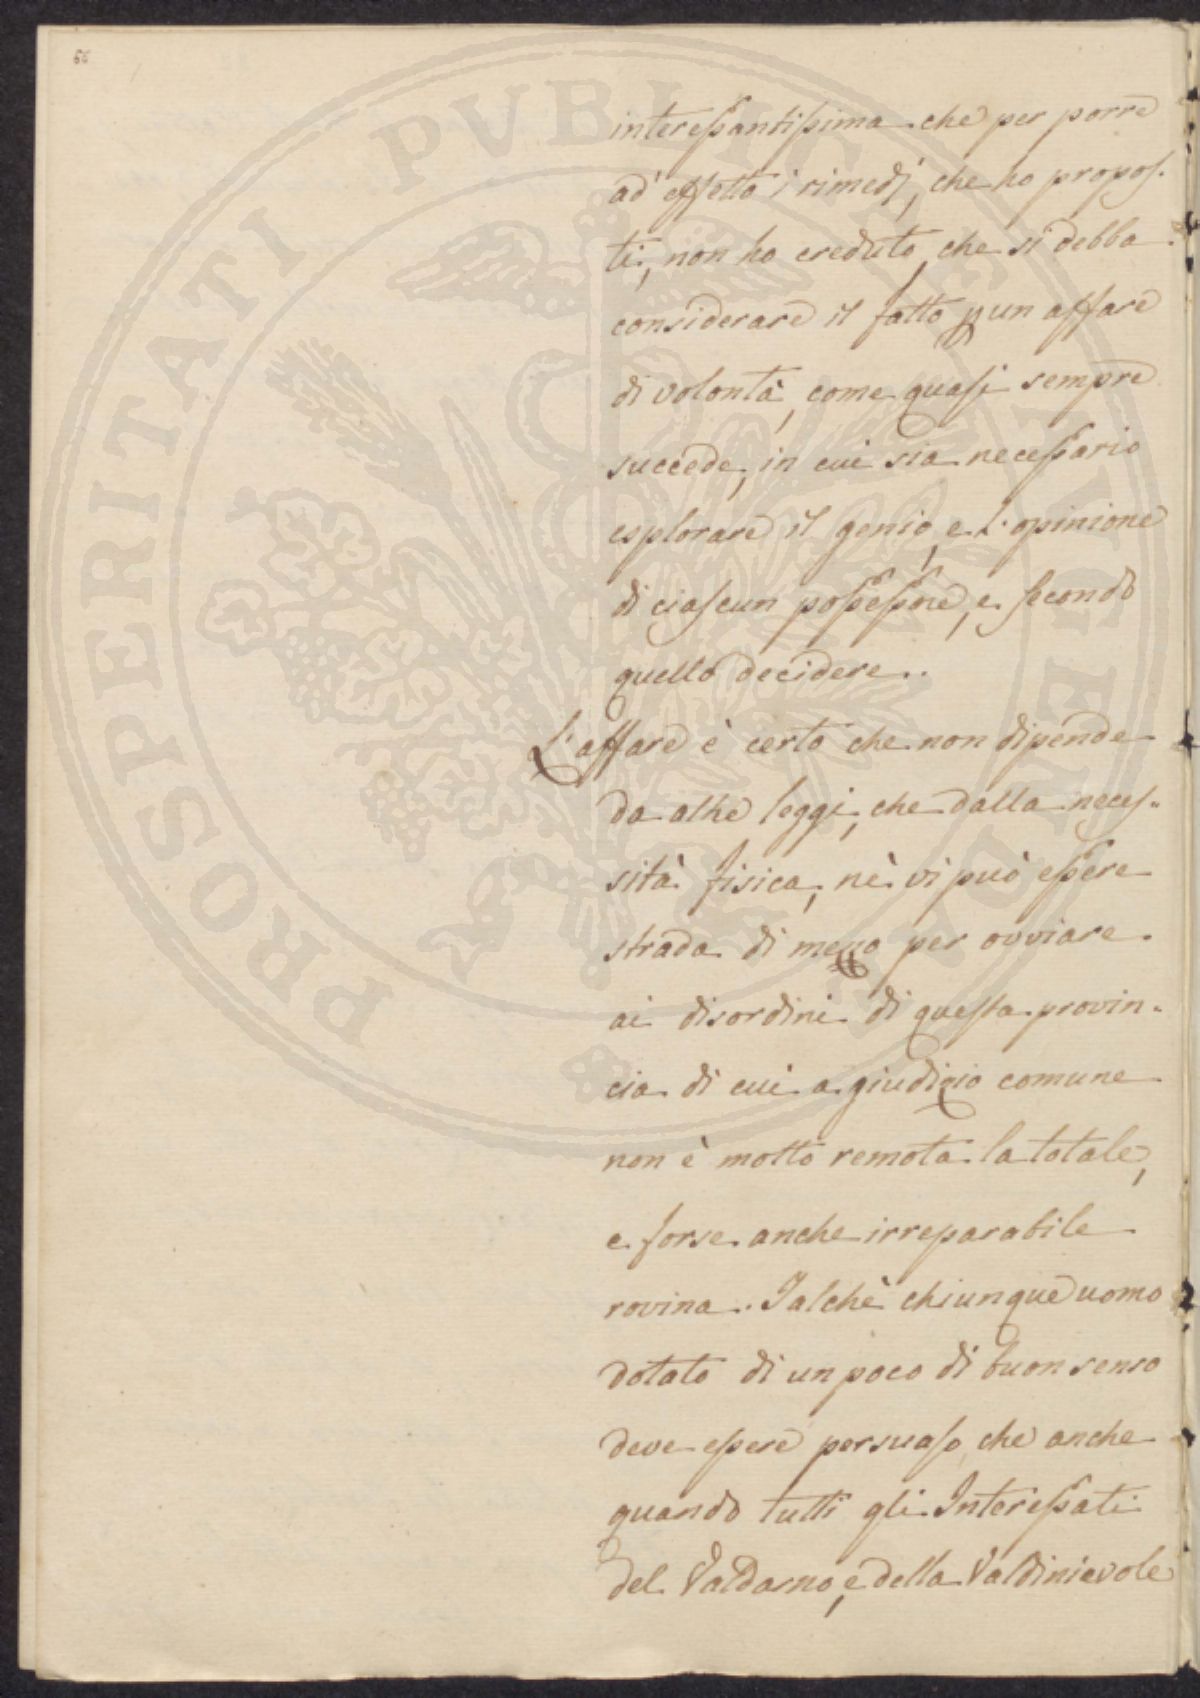 56
interessantissima che per porre
ad' effetto i rimedj, che ho propos-
ti, non ho creduto, che si debba
considerare il fatto p un affare
di volontà, come quasi sempre
succede, in cui sia necessario
esplorare il genio, e l'opinione
di ciascun possessore, e secondo
quello decidere..
L'affare è certo che non dipende
da altre leggi, che dalla neces-
sità fisica, nè vi può essere
strada di mezzo per ovviare
ai disordini di questa provin-
cia di cui a giudizio comune
non è molto remota la totale,
e forse anche irreparabile
rovina. Talchè chiunque uomo
dotato di un poco di buon senso
deve essere persuaso, che anche
quando tutti gli Interessati
del Valdarno, e della Valdinievole
PROSPERITATI PVBLICAE AVGENDAE